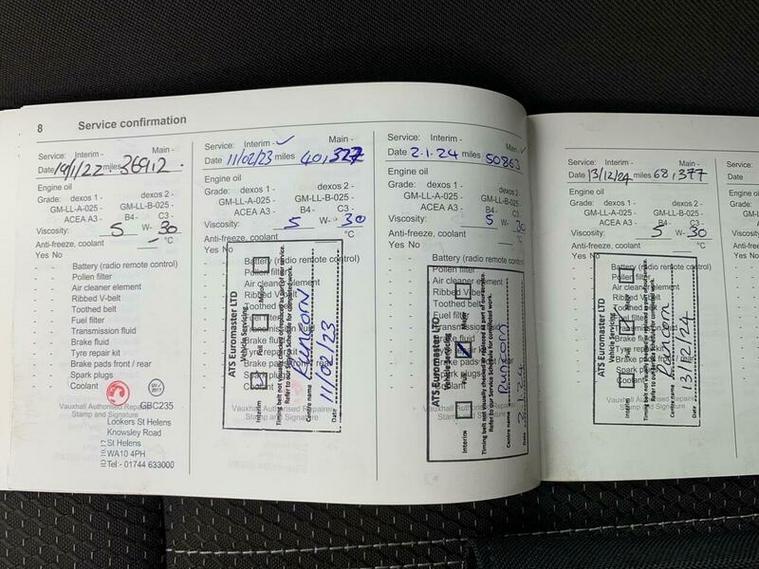 8 Service confirmation
Service: Interim - Main -
Date 19/1/22 miles 36912.
Engine oil
Grade: dexos 1 - dexos 2 -
GM-LL-A-025 - GM-LL-B-025 -
ACEA A3 - B4 - C3 -
Viscosity: 5 W- 30
Anti-freeze, coolant - °C
Yes No
Battery (radio remote control)
Pollen filter
Air cleaner element
Ribbed V-belt
Toothed belt
Fuel filter
Transmission fluid
Brake fluid
Tyre repair kit
Brake pads front / rear
Spark plugs
Coolant
Vauxhall Authorised Repairer
Stamp and Signature
GBC235
Lookers St Helens
Knowsley Road
St Helens
WA10 4PH
Tel - 01744 633000
Service: Interim - ✓ Main -
Date 11/02/23 miles 40,327
Engine oil
Grade: dexos 1 - dexos 2 -
GM-LL-A-025 - GM-LL-B-025 -
ACEA A3 - B4 - C3 -
Viscosity: 5 W- 30
Anti-freeze, coolant °C
Yes No
Battery (radio remote control)
Pollen filter
Air cleaner element
Ribbed V-belt
Toothed belt
Fuel filter
Transmission fluid
Brake fluid
Tyre repair kit
Brake pads front / rear
Spark plugs
Coolant
Vauxhall Authorised Repairer
Stamp and Signature
ATS Euromaster LTD
Vehicle Servicing
Interim Full Major
Timing belt not visually checked or replaced as part of our service.
Refer to our Service Schedule for completed work.
Centre name Runcorn
Date 11/02/23
Service: Interim - Main - ✓
Date 2.1.24 miles 50863
Engine oil
Grade: dexos 1 - dexos 2 -
GM-LL-A-025 - GM-LL-B-025 -
ACEA A3 - B4 - C3 -
Viscosity: 5 W- 30
Anti-freeze, coolant °C
Yes No
Battery (radio remote control)
Pollen filter
Air cleaner element
Ribbed V-belt
Toothed belt
Fuel filter
Transmission fluid
Brake fluid
Tyre repair kit
Brake pads front / rear
Spark plugs
Coolant
Vauxhall Authorised Repairer
Stamp and Signature
ATS Euromaster LTD
Vehicle Servicing
Interim Full Major
Timing belt not visually checked or replaced as part of our service.
Refer to our Service Schedule for completed work.
Centre name Runcorn
Date 2.1.24
Service: Interim - Main -
Date 13/12/24 miles 68,377
Engine oil
Grade: dexos 1 - dexos 2 -
GM-LL-A-025 - GM-LL-B-025 -
ACEA A3 - B4 - C3 -
Viscosity: 5 W- 30
Anti-freeze, coolant °C
Yes No
Battery (radio remote control)
Pollen filter
Air cleaner element
Ribbed V-belt
Toothed belt
Fuel filter
Transmission fluid
Brake fluid
Tyre repair kit
Brake pads front / rear
Spark plugs
Coolant
Vauxhall Authorised Repairer
Stamp and Signature
ATS Euromaster LTD
Vehicle Servicing
Interim Full Major
Timing belt not visually checked or replaced as part of our service.
Refer to our Service Schedule for completed work.
Centre name Runcorn
Date 13/12/24
Service:
Date
Engine oil
Grade:
Viscosity:
Anti-freeze
Yes No